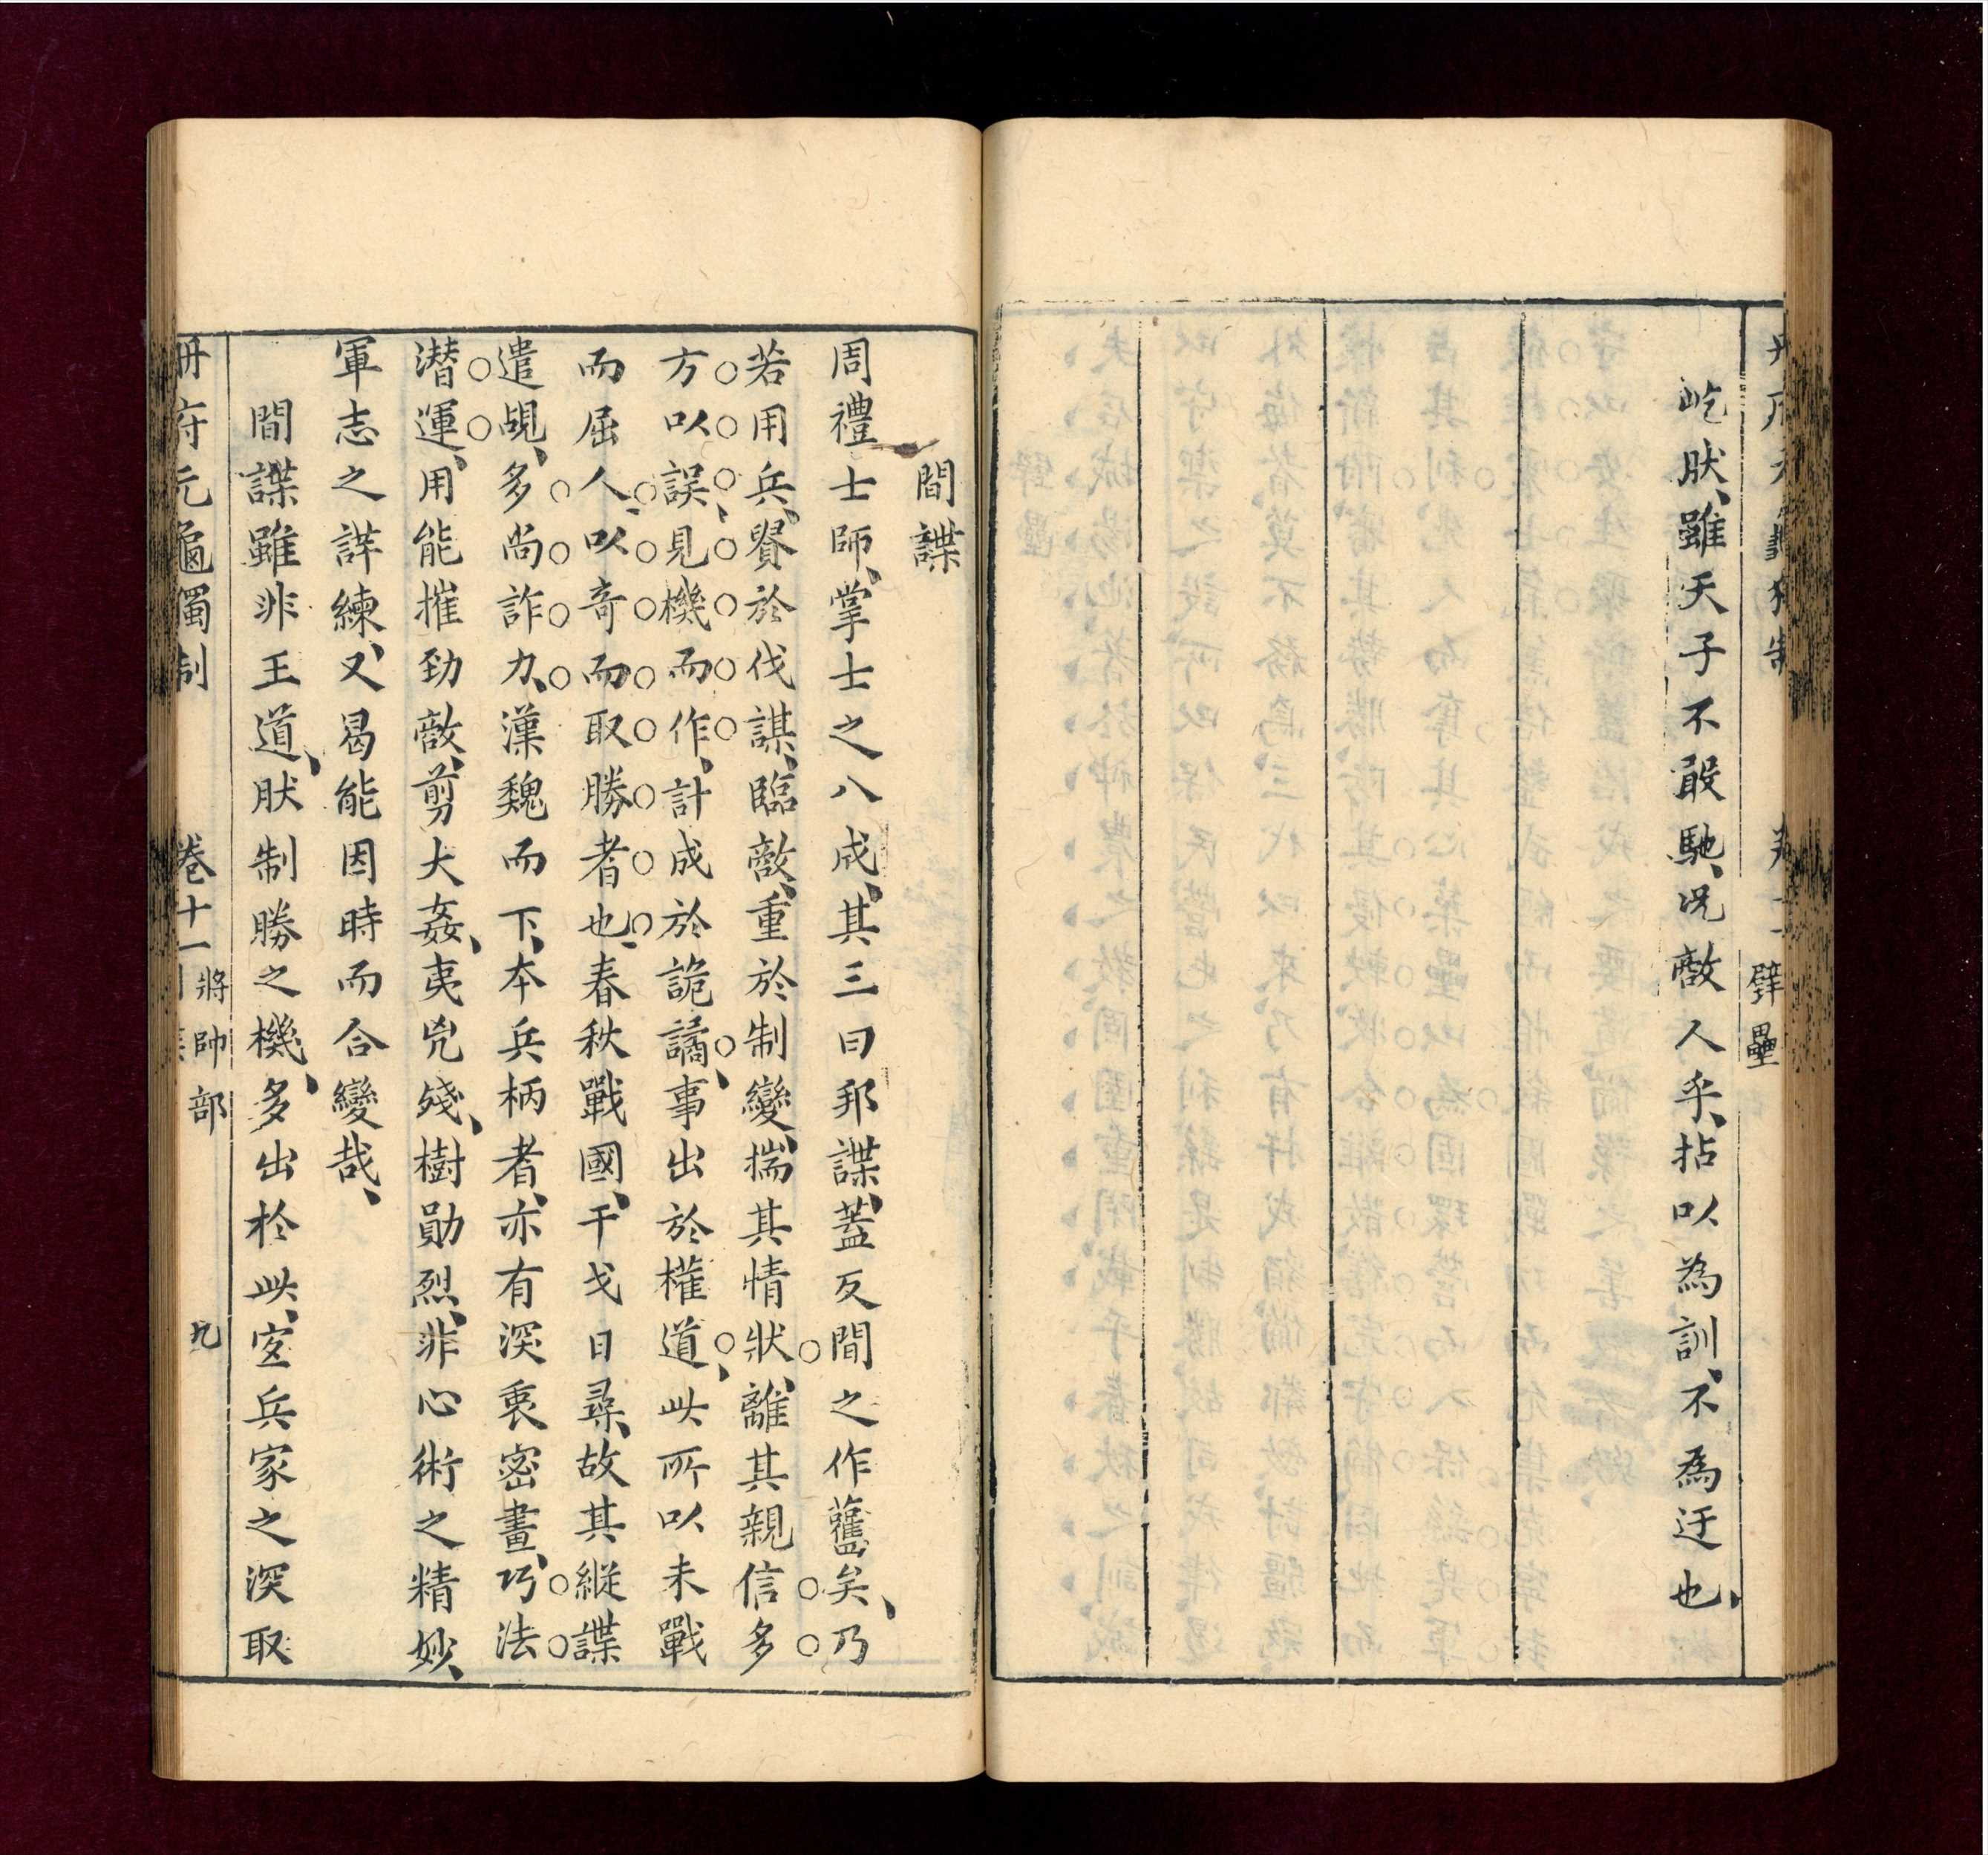 壁壘
屹肰、雖天子不敢馳、况敵人乎、拈以為訓、不為迂也、
間諜
周禮士師、掌士之八成、其三曰邦諜、蓋反間之作舊矣、乃
若用兵、貴於伐謀、臨敵、重於制變、揣其情狀、離其親信多
方以誤、見機而作、計成於詭譎、事出於權道、此所以未戰
而屈人、以奇而取勝者也、春秋戰國、干戈日尋、故其縱諜
遣覘、多尚詐力、漢魏而下、本兵柄者、亦有深衷密畫、巧法
潛運、用能摧勁敵、剪大姦、夷兇殘、樹勛烈、非心術之精妙、
軍志之詳練、又曷能因時而合變哉、
間諜雖非王道、肰制勝之機、多出於此、寔兵家之深取
冊府元龜獨制 卷十一 將帥部 九